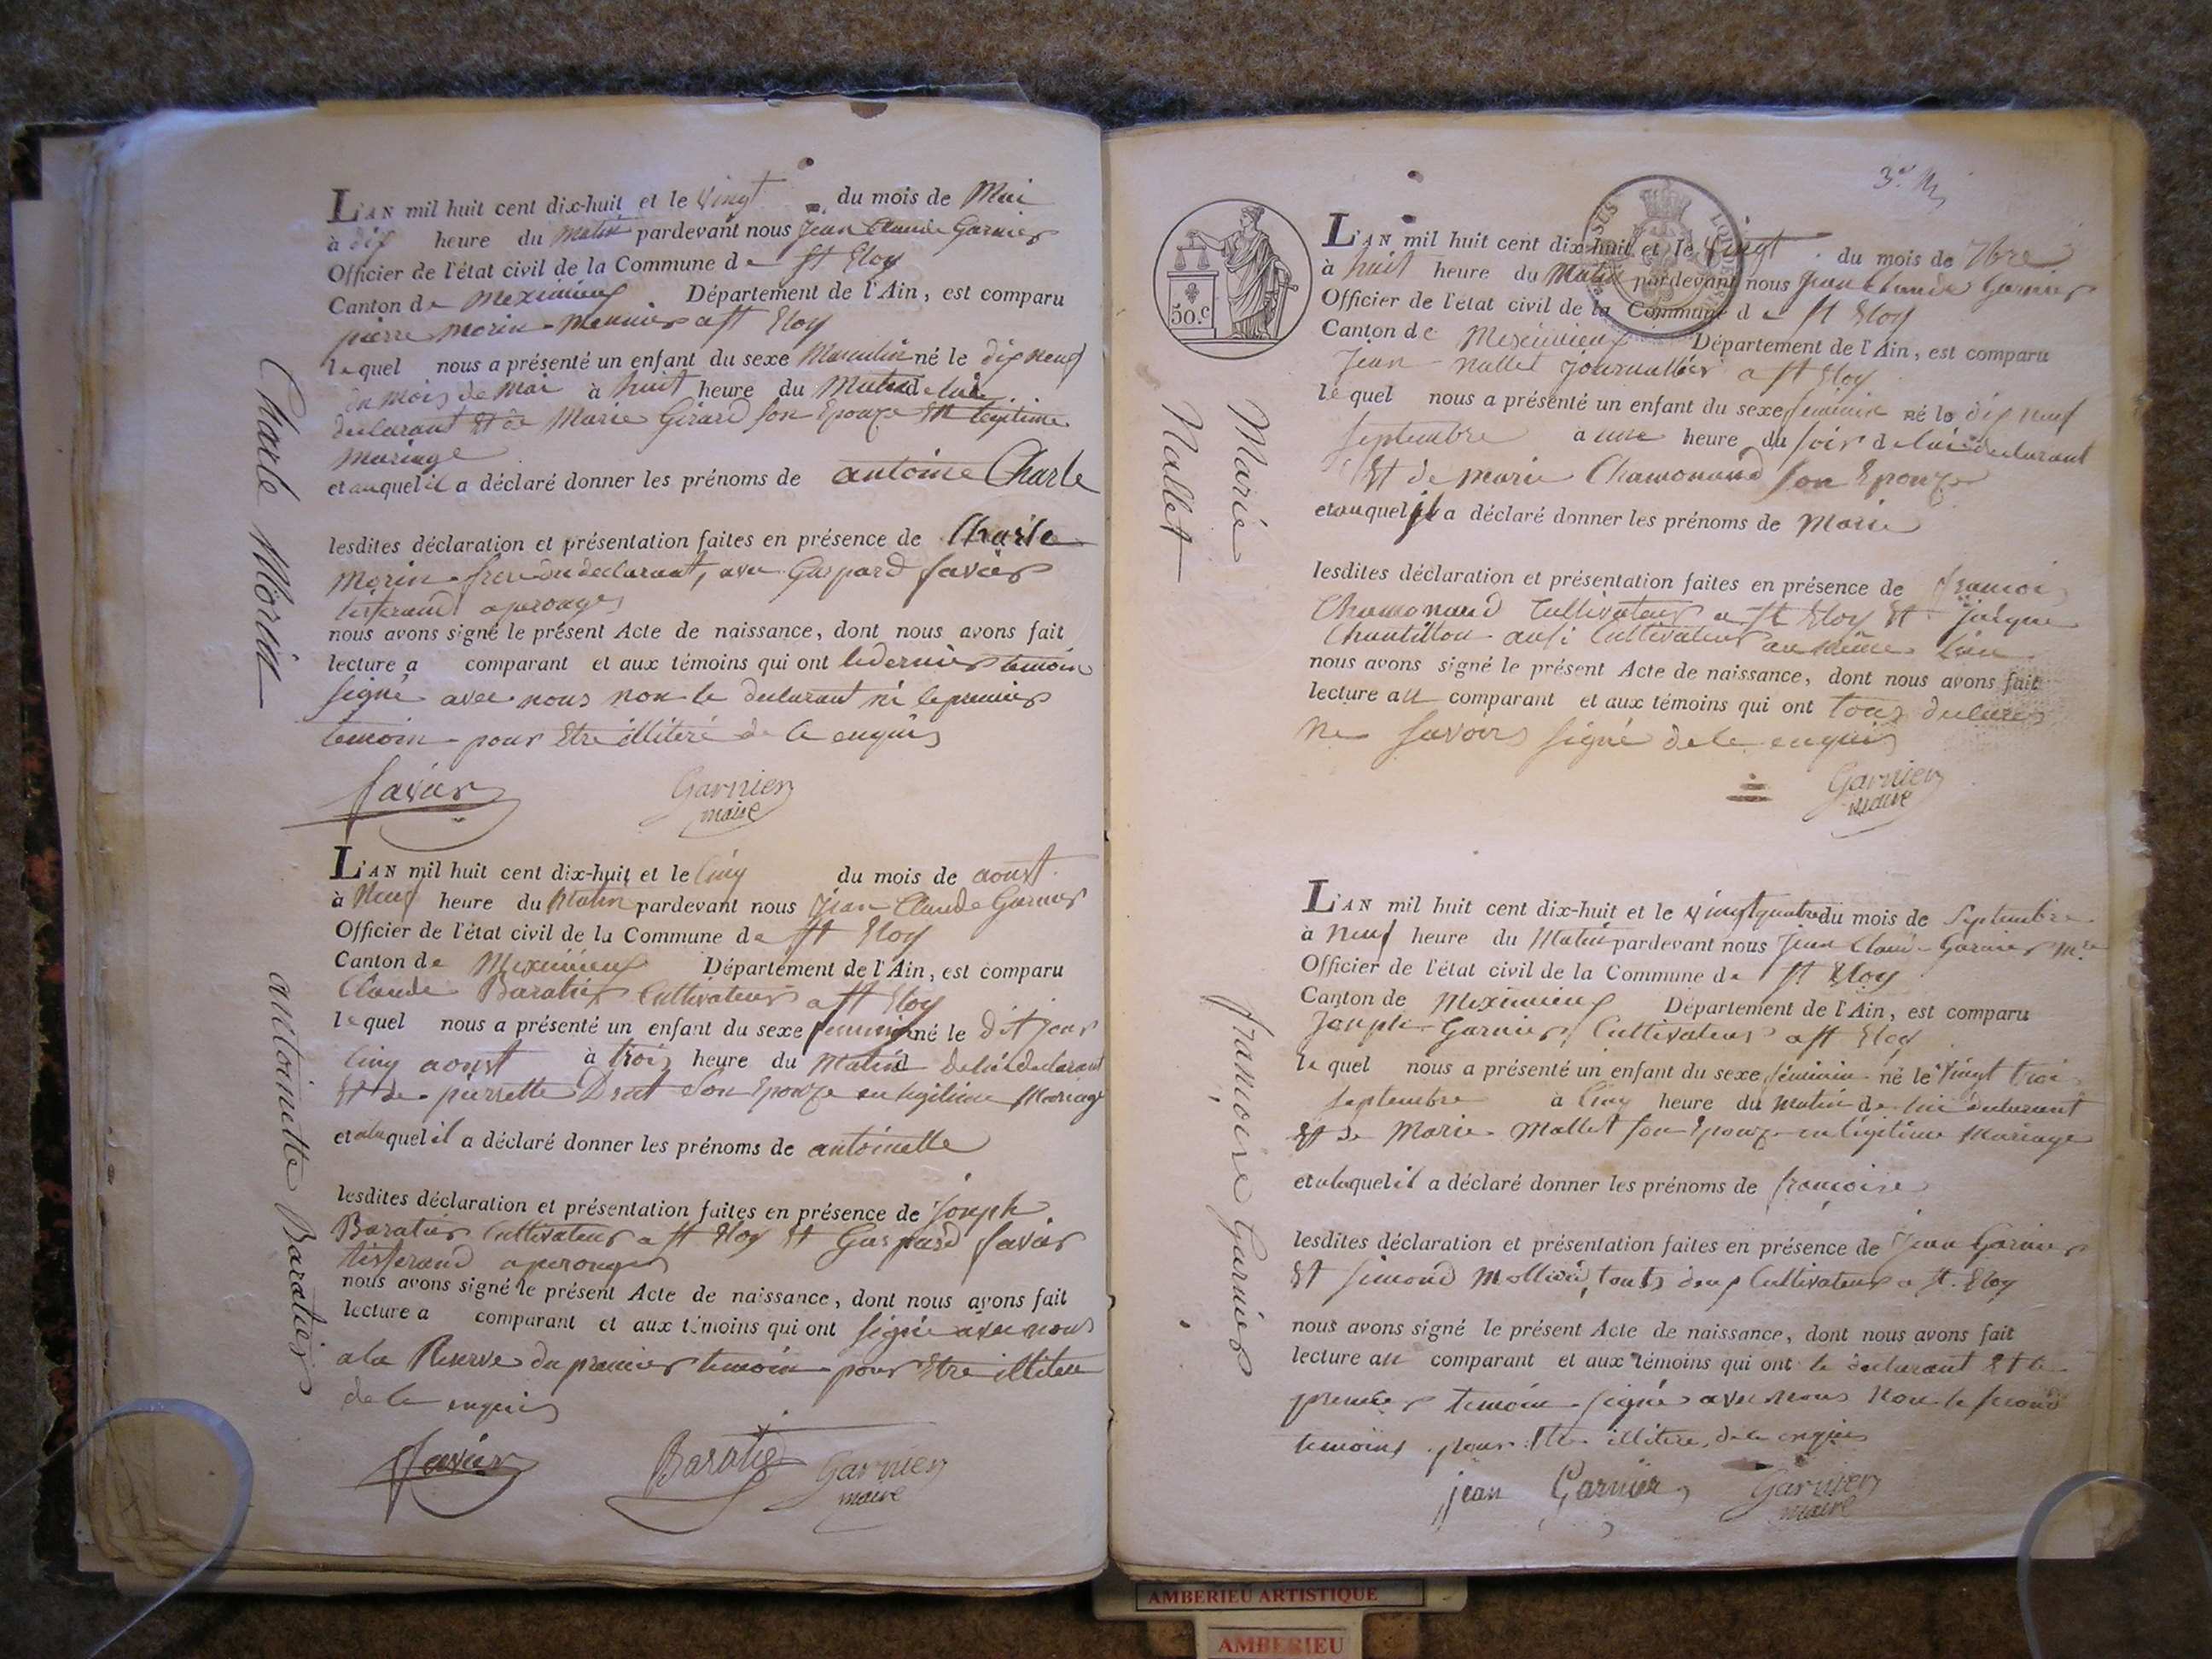 L'AN mil huit cent dix-huit et le vingt du mois de Mai
à dix heure du matin pardevant nous Jean Claude Garnier
Officier de l'état civil de la Commune de St Eloy
Canton de Meximieux Département de l'Ain, est comparu
pierre morin Meunier a St Eloy
lequel nous a présenté un enfant du sexe Masculin né le dix neuf
du mois de mai à huit heure du Matin de lui
declarant Et de Marie Girard son Epouze En legitime
mariage
et auquel il a déclaré donner les prénoms de antoine Charle
lesdites déclaration et présentation faites en présence de Charle
Morin frere du declarant, avec Gaspard favier
tisserand a perouges
nous avons signé le présent Acte de naissance, dont nous avons fait
lecture a comparant et aux témoins qui ont le dernier temoin
signé avec nous non le declarant ni le premier
temoin pour Etre illiteré de ce enquis
favier Garnier
maire
Charle Morin
L'AN mil huit cent dix-huit et le Cinq du mois de aoust
à Neuf heure du Matin pardevant nous Jean Claude Garnier
Officier de l'état civil de la Commune de St Eloy
Canton de Meximieux Département de l'Ain, est comparu
Claude Baratier Cultivateur a St Eloy
lequel nous a présenté un enfant du sexe feminin né le dit jour
Cinq aoust à trois heure du Matin de lui declarant
Et de pierrette Drat Son Epouze en legitime Mariage
et alaquel il a déclaré donner les prénoms de antoinette
lesdites déclaration et présentation faites en présence de Joseph
Baratier Cultivateur a St Eloy Et Gaspard favier
tisserand a perouges
nous avons signé le présent Acte de naissance, dont nous avons fait
lecture a comparant et aux témoins qui ont signé avec nous
a la Reserve du premier temoin pour Etre illiteré
de ce enquis
favier Baratier Garnier
maire
antoinette Baratier
50.c
L'AN mil huit cent dix-huit et le vingt du mois de 7bre
à huit heure du Matin pardevant nous Jean Claude Garnier
Officier de l'état civil de la Commune de St Eloy
Canton de Meximieux Département de l'Ain, est comparu
Jean Nallet Journallier a St Eloy
lequel nous a présenté un enfant du sexe feminin né le dix neuf
septembre a une heure du soir de lui declarant
Et de marie Chamonard son Epouze
et auquel il a déclaré donner les prénoms de Marie
lesdites déclaration et présentation faites en présence de francois
Chamonard Cultivateur a St Eloy Et jacque
Chantillon aussi Cultivateur au même lieu
nous avons signé le présent Acte de naissance, dont nous avons fait
lecture au comparant et aux témoins qui ont tous declarer
ne savoir signé de ce enquis
Garnier
maire
Marie
Nallet
L'AN mil huit cent dix-huit et le vingt quatre du mois de Septembre
à Neuf heure du Matin pardevant nous Jean Claude Garnier mre
Officier de l'état civil de la Commune de St Eloy
Canton de Meximieux Département de l'Ain, est comparu
Joseph Garnier Cultivateur a St Eloy
lequel nous a présenté un enfant du sexe féminin né le vingt trois
septembre à Cinq heure du matin de lui declarant
Et de Marie Mallet son Epouze en légitime Mariage
et alaquel il a déclaré donner les prénoms de francoise
lesdites déclaration et présentation faites en présence de Jean Garnier
Et Simond Mollard, touts deux Cultivateur a St. Eloy
nous avons signé le présent Acte de naissance, dont nous avons fait
lecture au comparant et aux témoins qui ont le declarant Et le
premier temoin signé avec nous Non le second
temoins pour Etre illiteré, de ce enquis
jean Garnier Garnier
maire
francoise Garnier
AMBERIEU ARTISTIQUE
AMBERIEU